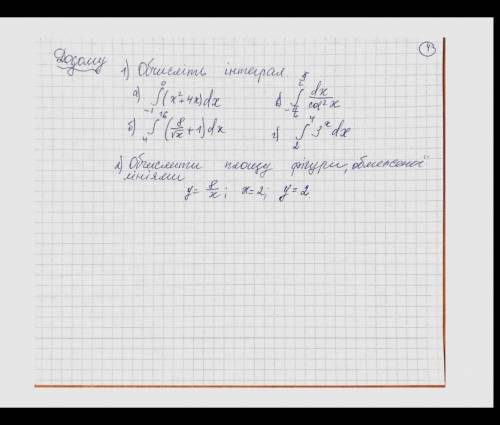 Додому
4
1) Обчисліть інтеграл.
а) ∫₋₁⁰ (x²+4x)dx
в) dx / cos²x
б) ∫₄¹⁶ (8/√x + 1)dx
г) ∫₂⁴ 3ˣ dx
2) Обчислити площу фігури, обмеженої
лініями
y = 8/x; x=2; y=2